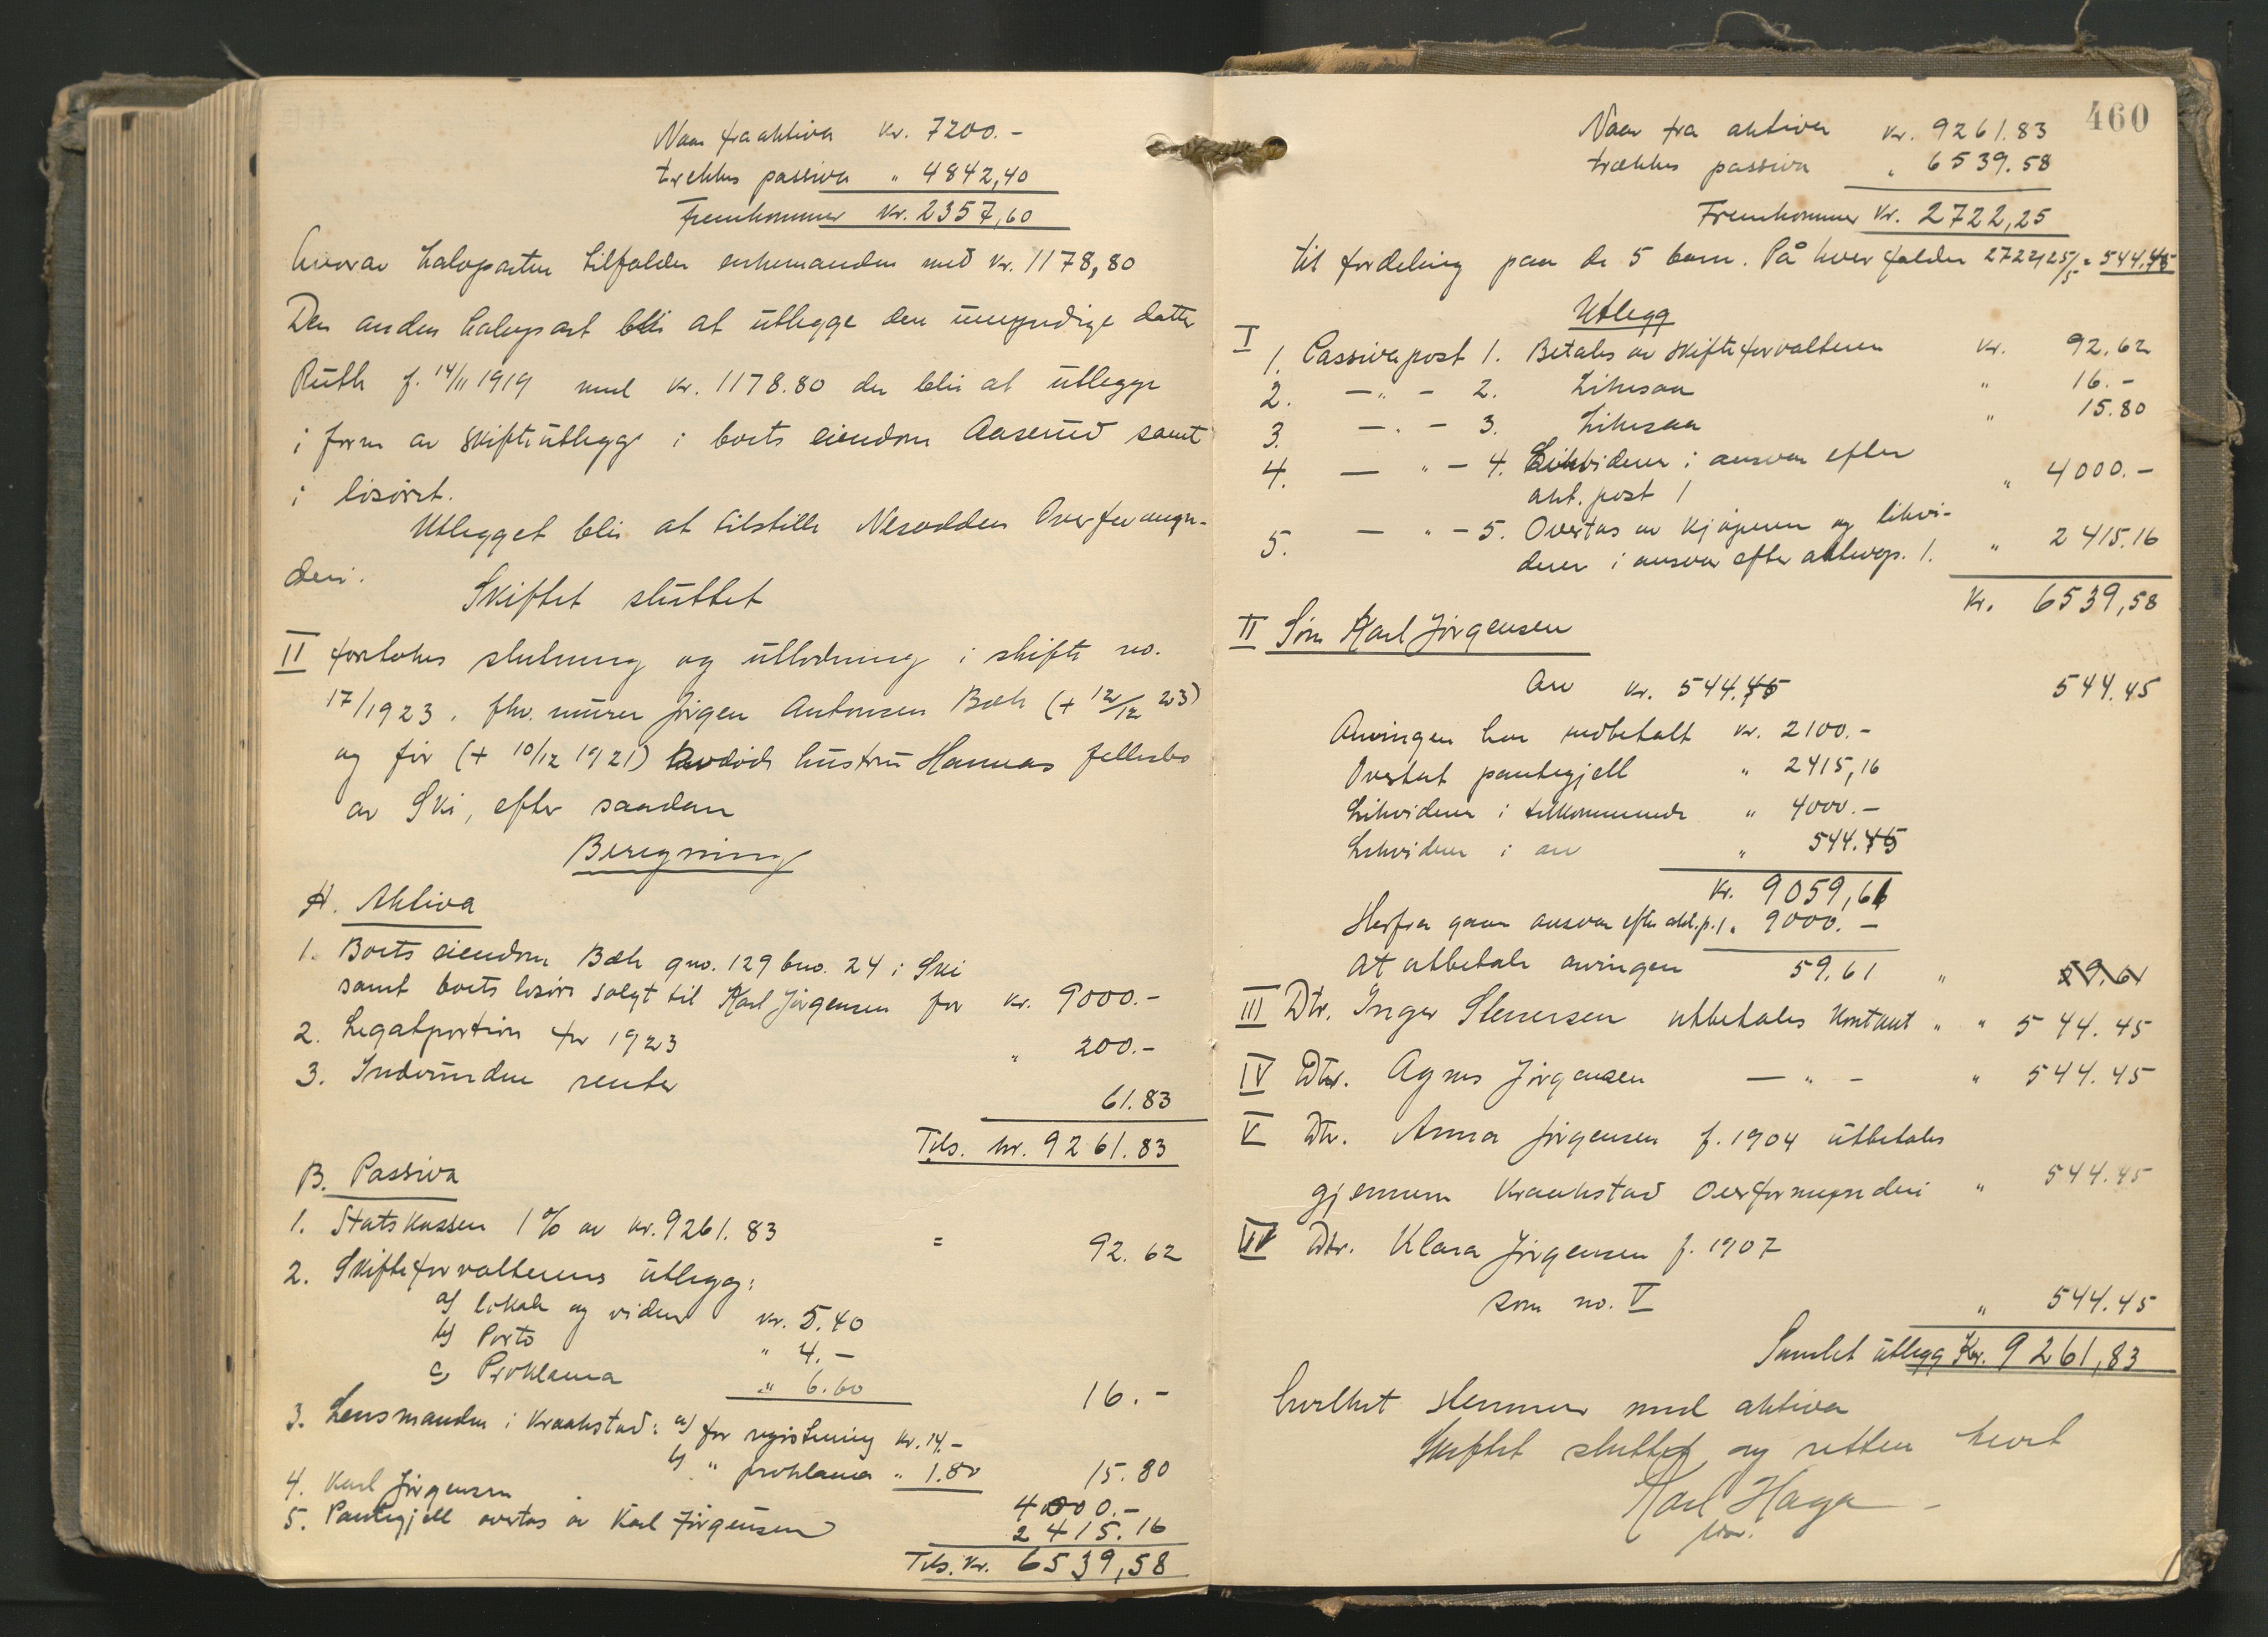 Naar fra aktiva kr. 7200.-
trekkes passiva " 4842,40
Fremkommer kr. 2357,60
hvorav halvparten tilfalder enkemanden med kr. 1178,80
Den anden halvpart blir at utlegge den umyndige datter
Ruth f. 14/11 1919 med kr. 1178.80 der blir at utlegge
i form av skifteutlegg i boets eiendom Aaserud samt
i løsøret.
Utlegget blir at tilstille Nesodden Overformyn-
deri.
Skiftet sluttet
II foretokes slutning og utlodning i skifte no.
17/1923. fhv. murer Jørgen Antonsen Bæk (+ 12/12 23)
og før (+ 10/12 1921) avdøde hustru Hannas fellesbo
av Ski, efter saadan
Beregning
A. Aktiva
1. Boets eiendom Bæk gno. 129 bno. 24 i Ski
samt boets løsøre solgt til Karl Jørgensen for kr. 9000.-
2. Legatportion for 1923 " 200.-
3. Indvundne renter 61.83
Tils. kr. 9261.83
B. Passiva
1. Statskassen 1% av kr. 9261.83 = 92.62
2. Skifteforvalterens utlegg:
a) lokale og vidner kr. 5.40
b) Porto " 4.-
c) Proklama " 6.60 16.-
3. Lensmanden i Kraakstad: a) for registrering kr. 14.-
b) " proklama " 1.80 15.80
4. Karl Jørgensen 4000.-
5. Pantegjeld overtas av Karl Jørgensen 2415.16
Tils. kr. 6539,58
460
Naar fra aktiva kr. 9261.83
trækkes passiva " 6539.58
Fremkommer kr. 2722,25
til fordeling paa de 5 barn. På hver falder 2722,25/5 = 544.45
Utlegg
I 1. Passivapost 1. Betales av skifteforvalteren kr. 92.62
2. — " — 2. Likesaa " 16.-
3. — " — 3. Likesaa " 15.80
4. — " — 4. Likviderer i ansvar efter
akt. post 1 " 4000.-
5. — " — 5. Overtas av kjøperen og likvi-
derer i ansvar efter aktivap. 1. " 2415.16
Kr. 6539,58
II Søn Karl Jørgensen
Arv kr. 544.45 544.45
Arvingen har indbetalt kr. 2100.-
Overtat pantegjeld " 2415,16
Likviderer i tilkommende " 4000.-
Likviderer i arv " 544.45
Kr. 9059,61
Herfra gaar ansvar efter akt.p.1 " 9000.-
At utbetale arvingen 59.61 " 59.61
III Dtr. Inger Stenersen utbetales kontant " " 544.45
IV Dtr. Agnes Jørgensen — " — " 544.45
V Dtr. Anna Jørgensen f. 1904 utbetales
gjennem Kraakstad Overformynderi " 544.45
VI Dtr. Klara Jørgensen f. 1907
som no. V " 544.45
Samlet utlegg Kr. 9261,83
hvilket stemmer med aktiva
Skiftet sluttet og retten hævet
Karl Haga